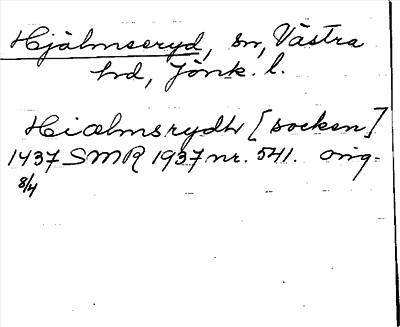 Hjälmseryd, sn, Västra
hd, Jönk. l.
Hiælmsrydh [socken]
1437 SMR 1937 nr. 541. orig.
8/4